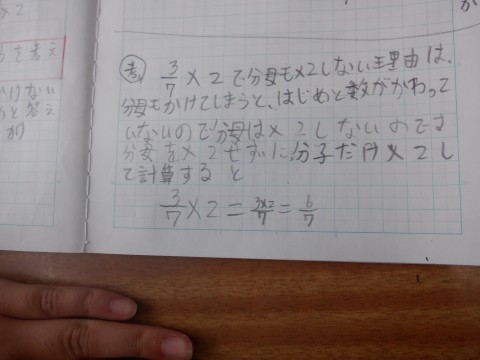 ×2
を考え
かけない
と答え
が
考 3/7×2で分母も×2しない理由は、
分母もかけてしまうと、はじめと数がかわって
いないので分母は×2しないのです
分母を×2せずに分子だけ×2し
て計算すると
3/7×2=3×2/7=6/7